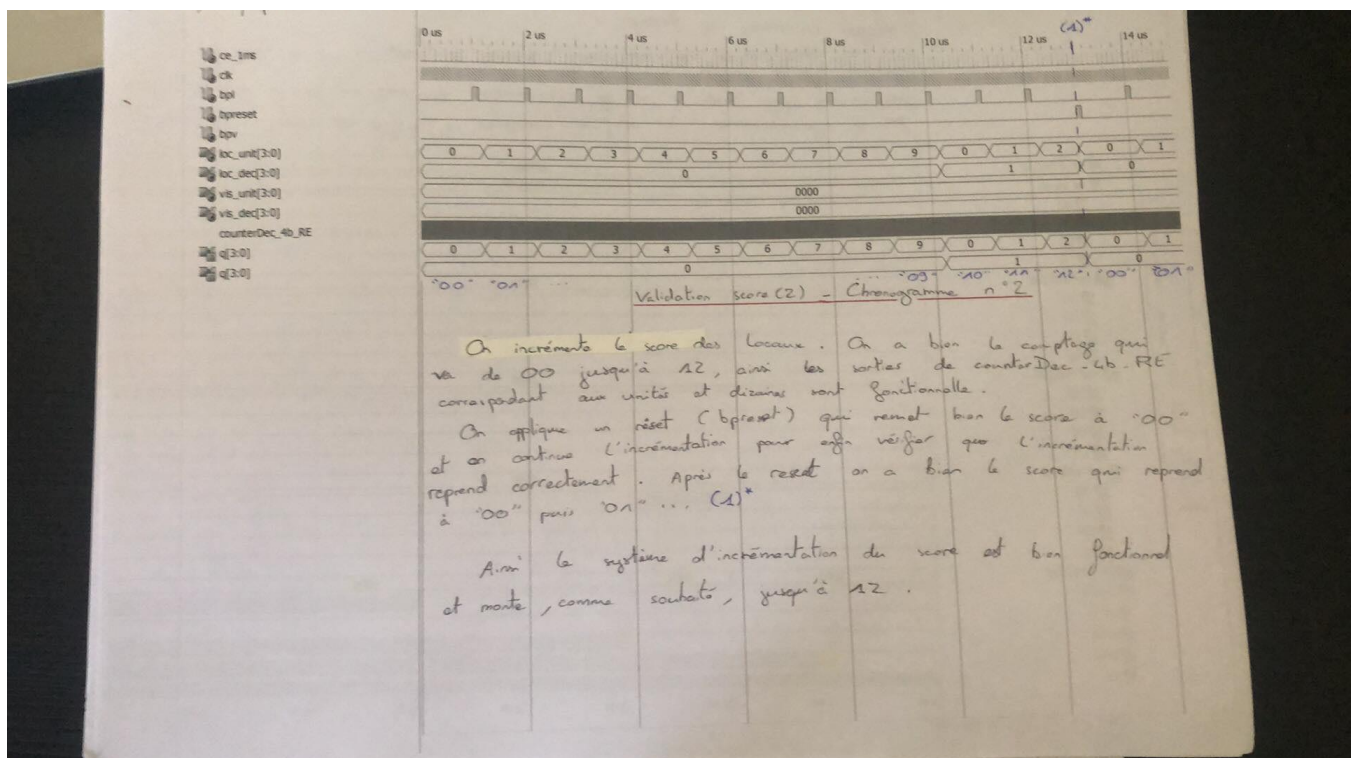 (1)*
0 us 2 us 4 us 6 us 8 us 10 us 12 us 14 us
ce_1ms
clk
bpl
bpreset
bpv
loc_unit[3:0] 0 1 2 3 4 5 6 7 8 9 0 1 2 0 1
loc_dec[3:0] 0 1 0
vis_unit[3:0] 0000
vis_dec[3:0] 0000
counterDec_4b_RE
q[3:0] 0 1 2 3 4 5 6 7 8 9 0 1 2 0 1
q[3:0] 0 1 0
"00" "01" ... ... "09" "10" "11" "12" "00" "01"
Validation score (2) - Chronogramme n°2
On incrémente le score des locaux. On a bien le comptage qui
va de 00 jusqu'à 12, ainsi les sorties de counterDec_4b_RE
correspondant aux unités et dizaines sont fonctionnelle.
On applique un réset (bpreset) qui remet bien le score à "00"
et on continue l'incrémentation pour enfin vérifier que l'incrémentation
reprend correctement. Après le reset on a bien le score qui reprend
à "00" puis "01" ... (1)*
Ainsi le système d'incrémentation du score est bien fonctionnel
et monte, comme souhaité, jusqu'à 12.